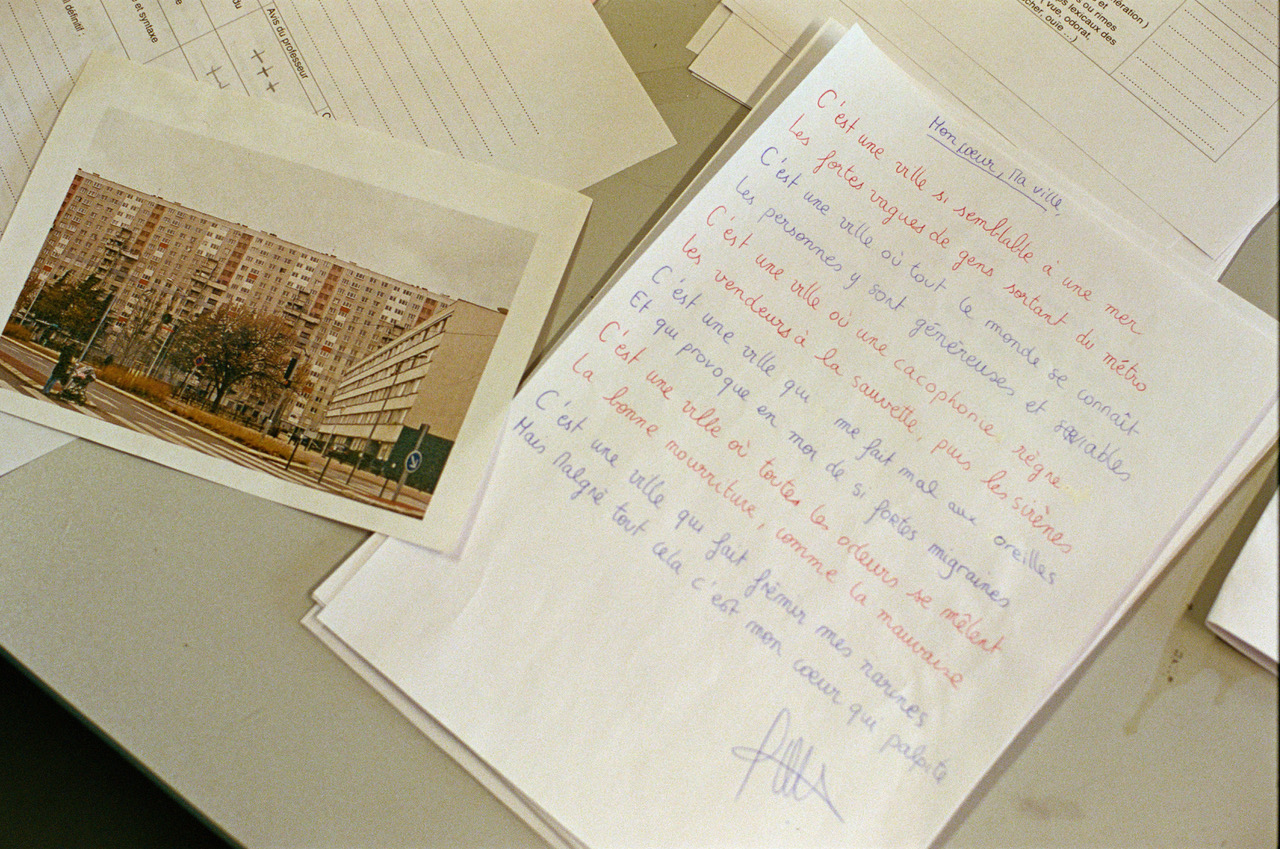 définitif
et syntaxe
du
Avis du professeur
+++
ération)
et
ou rimes
s lexicaux des
(vue, odorat,
cher, ouïe ...)
Mon cœur, Ma ville,
C'est une ville si semblable à une mer
Les fortes vagues de gens sortant du métro
C'est une ville où tout le monde se connaît
Les personnes y sont généreuses et serviables
C'est une ville où une cacophonie règne
Les vendeurs à la sauvette, puis les sirènes
C'est une ville qui me fait mal aux oreilles
Et qui provoque en moi de si fortes migraines
C'est une ville où toutes les odeurs se mêlent
La bonne nourriture, comme la mauvaise
C'est une ville qui fait frémir mes narines
Mais Malgré tout cela c'est mon cœur qui palpite